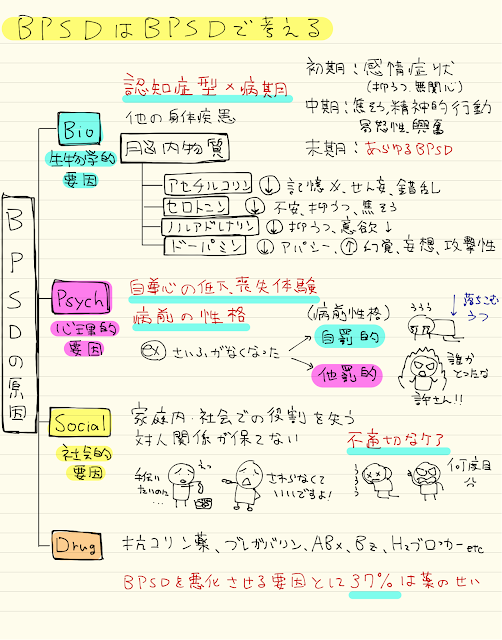 BPSDはBPSDで考える
認知症型×病期
初期：感情症状
(抑うつ、無関心)
中期：焦そう、精神的行動
易怒性、興奮
末期：あらゆるBPSD
BPSDの原因
Bio
生物学的
要因
他の身体疾患
脳内物質
アセチルコリン ↓ 記憶×、せん妄、錯乱
セロトニン ↓ 不安、抑うつ、焦そう
ノルアドレナリン ↓ 抑うつ、意欲↓
ドーパミン ↓ アパシー、↑ 幻覚、妄想、攻撃性
Psych
心理的
要因
自尊心の低下、喪失体験
病前の性格
(病前性格)
ex さいふがなくなった
自罰的
他罰的
落ちこむ
うつ
ううう
誰か
とったな
許さん!!
Social
社会的
要因
家庭内・社会での役割を失う
対人関係が保てない
不適切なケア
手伝い
たいのに…
えっ
さわらなくて
いいですよ!
ううう
何度目
Drug
抗コリン薬、プレガバリン、ABx、Bz、H2ブロッカー etc
BPSDを悪化させる要因として37%は薬のせい